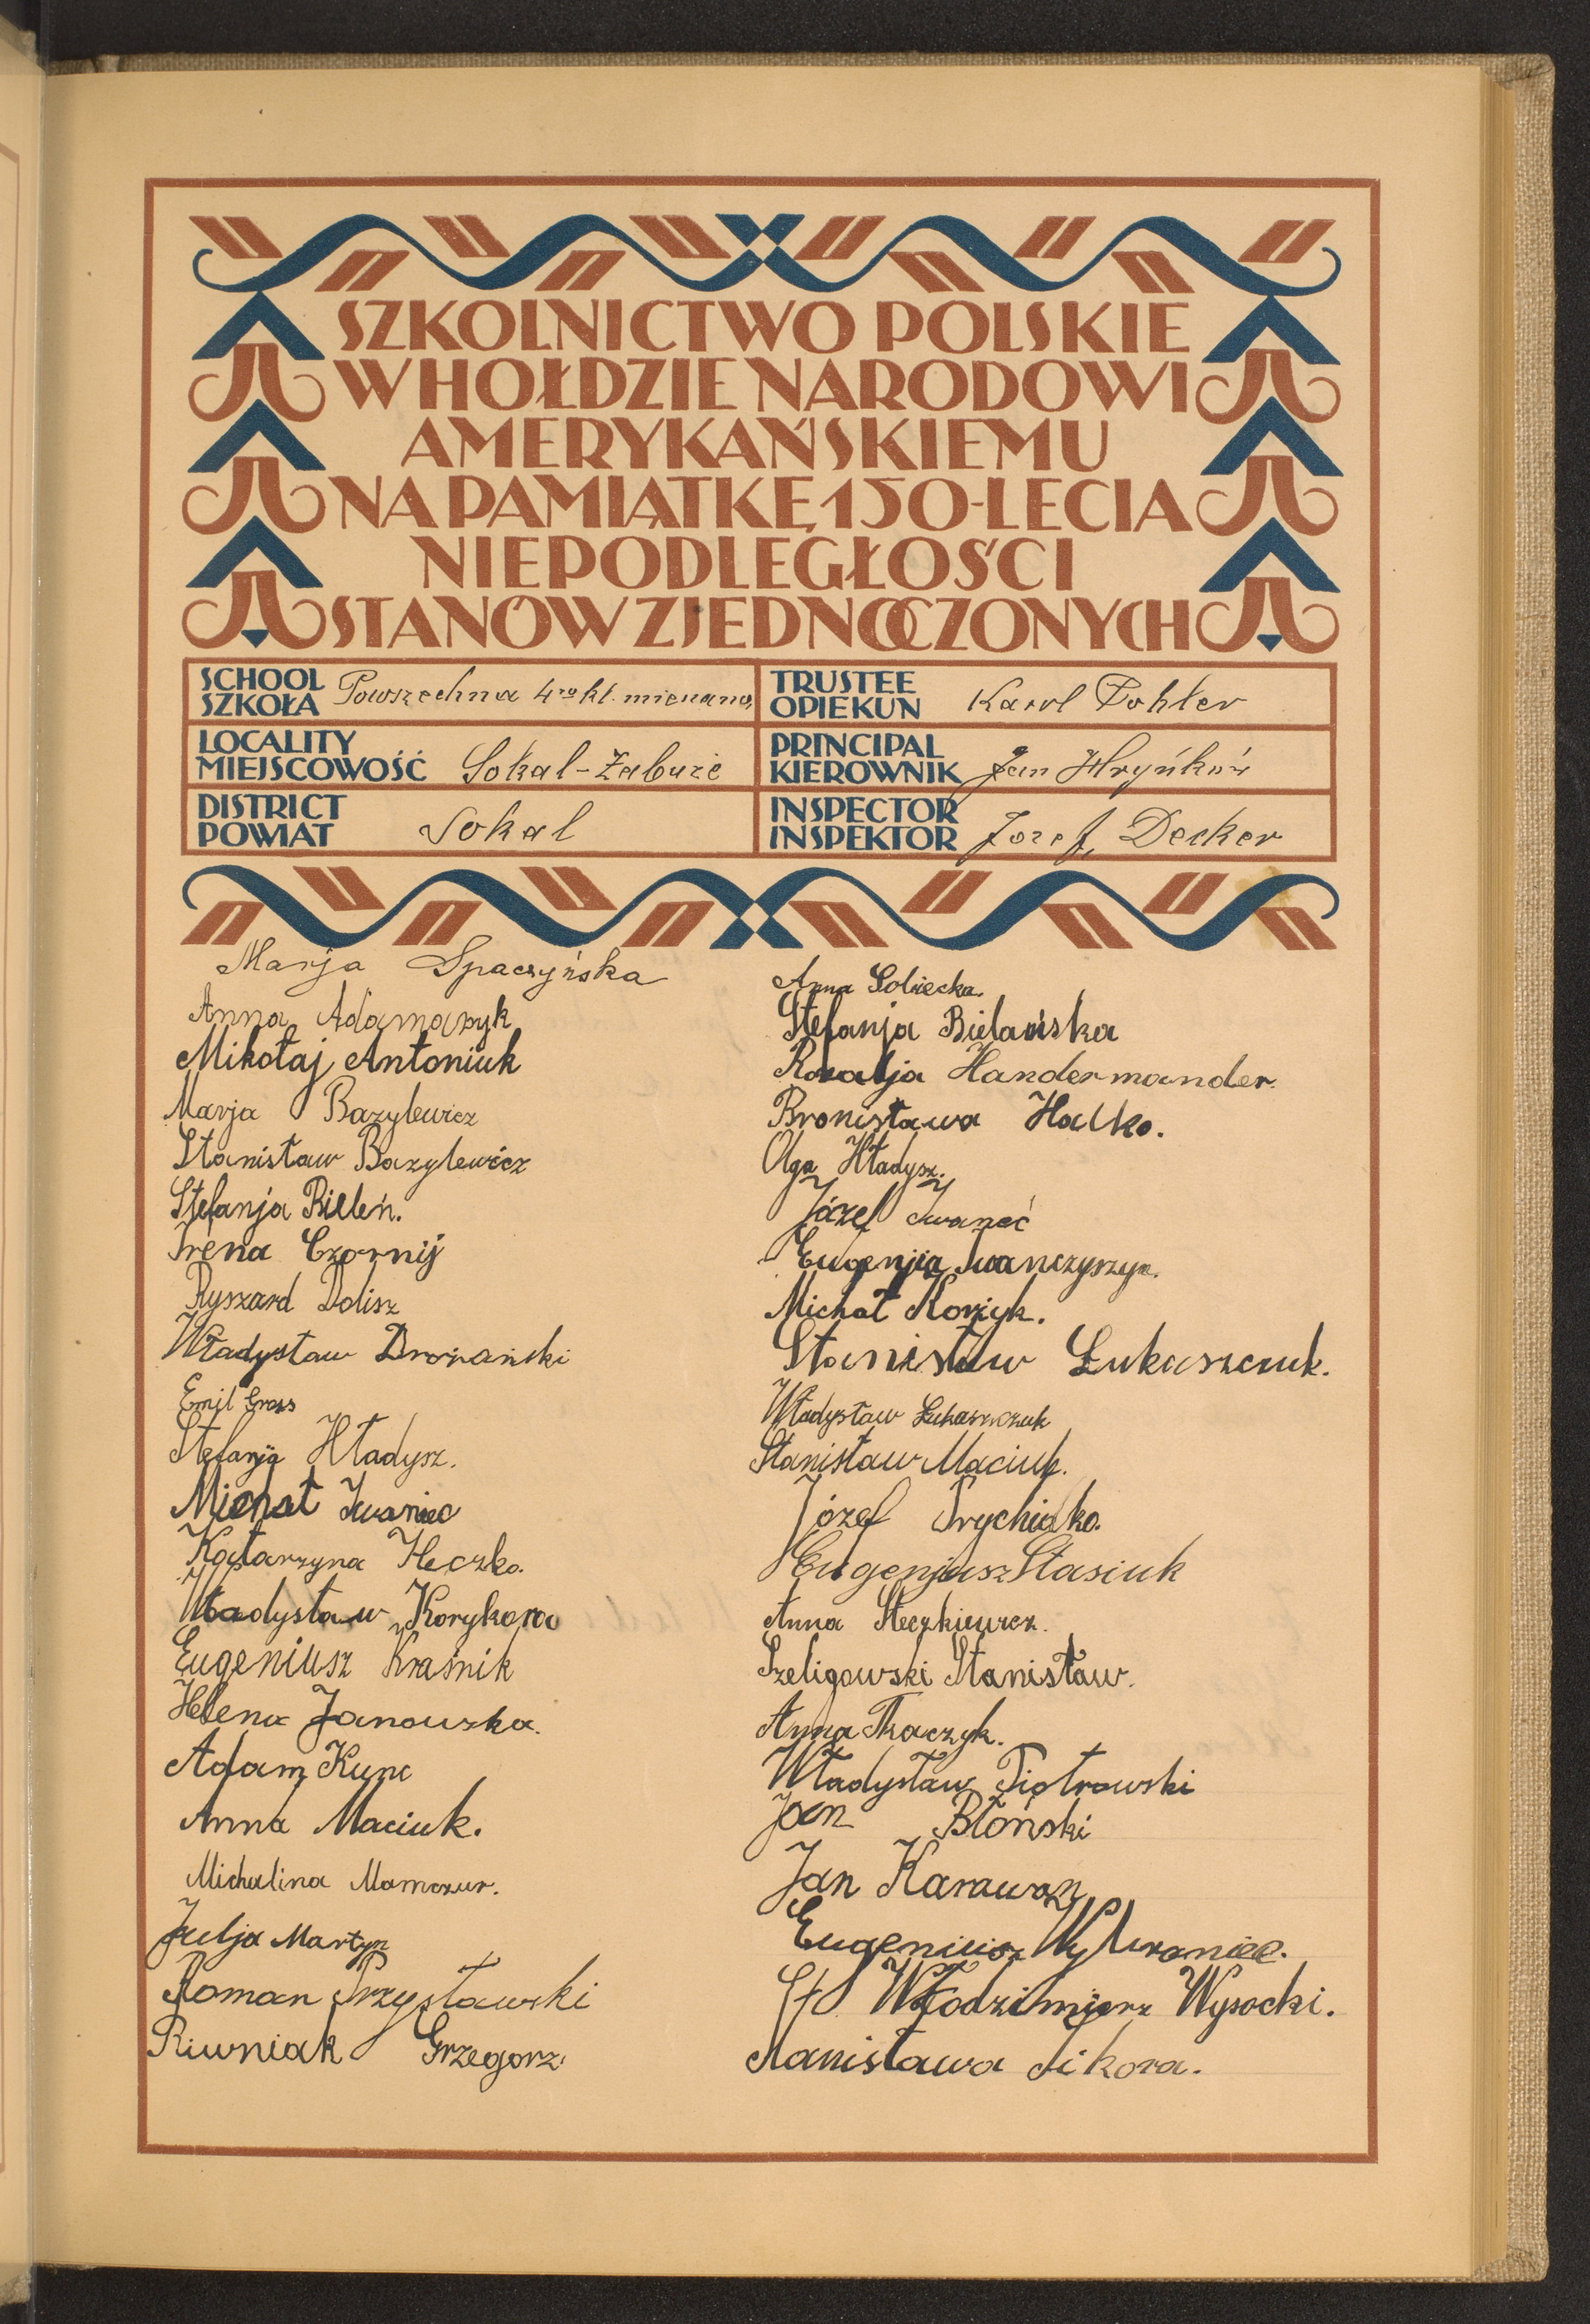 SZKOLNICTWO POLSKIE
W HOŁDZIE NARODOWI
AMERYKAŃSKIEMU
NA PAMIĄTKĘ 150-LECIA
NIEPODLEGŁOŚCI
STANÓW ZJEDNOCZONYCH
SCHOOL
SZKOŁA Powszechna 4ro kl.
TRUSTEE
OPIEKUN Karol
LOCALITY
MIEJSCOWOŚĆ Sokal-Zabuże
PRINCIPAL
KIEROWNIK Jan Hryńków
DISTRICT
POWIAT Sokal
INSPECTOR
INSPEKTOR Józef Decker
Marja Spaczyńska
Anna Adamczyk
Mikołaj Antoniuk
Marja Bazylewicz
Stanisław Bazylewicz
Stefanja Bileń.
Irena Czornij
Ryszard Dolisz
Władysław Drożański
Emil Gross
Stefanja Hładysz.
Michał Iwaniec
Katarzyna Heczko.
Władysław Korykora
Eugeniusz Kraśnik
Helena Janowska.
Adam Kunc
Anna Maciuk.
Michalina Mamczur.
Julja Martyn
Roman Przysławski
Riwniak Grzegorz.
Anna Sobiecka.
Stefanja Bielańska
Rozalja Handermander.
Bronisława Halko.
Olga Hładysz.
Józef Iwaneć
Eugenja Iwanczyszyn.
Michał Korzyk.
Stanisław Łukaszczuk.
Władysław Łukaszczuk
Stanisław Maciuk.
Józef Prychidko.
Eugenjusz Stasiuk
Anna Steczkiewicz.
Szeligowski Stanisław.
Anna Tkaczyk.
Władysław Piotrowski
Jan Błoński
Jan Karawan
Eugeniusz Wybraniec.
Włodzimierz Wysocki.
Stanisława Sikora.